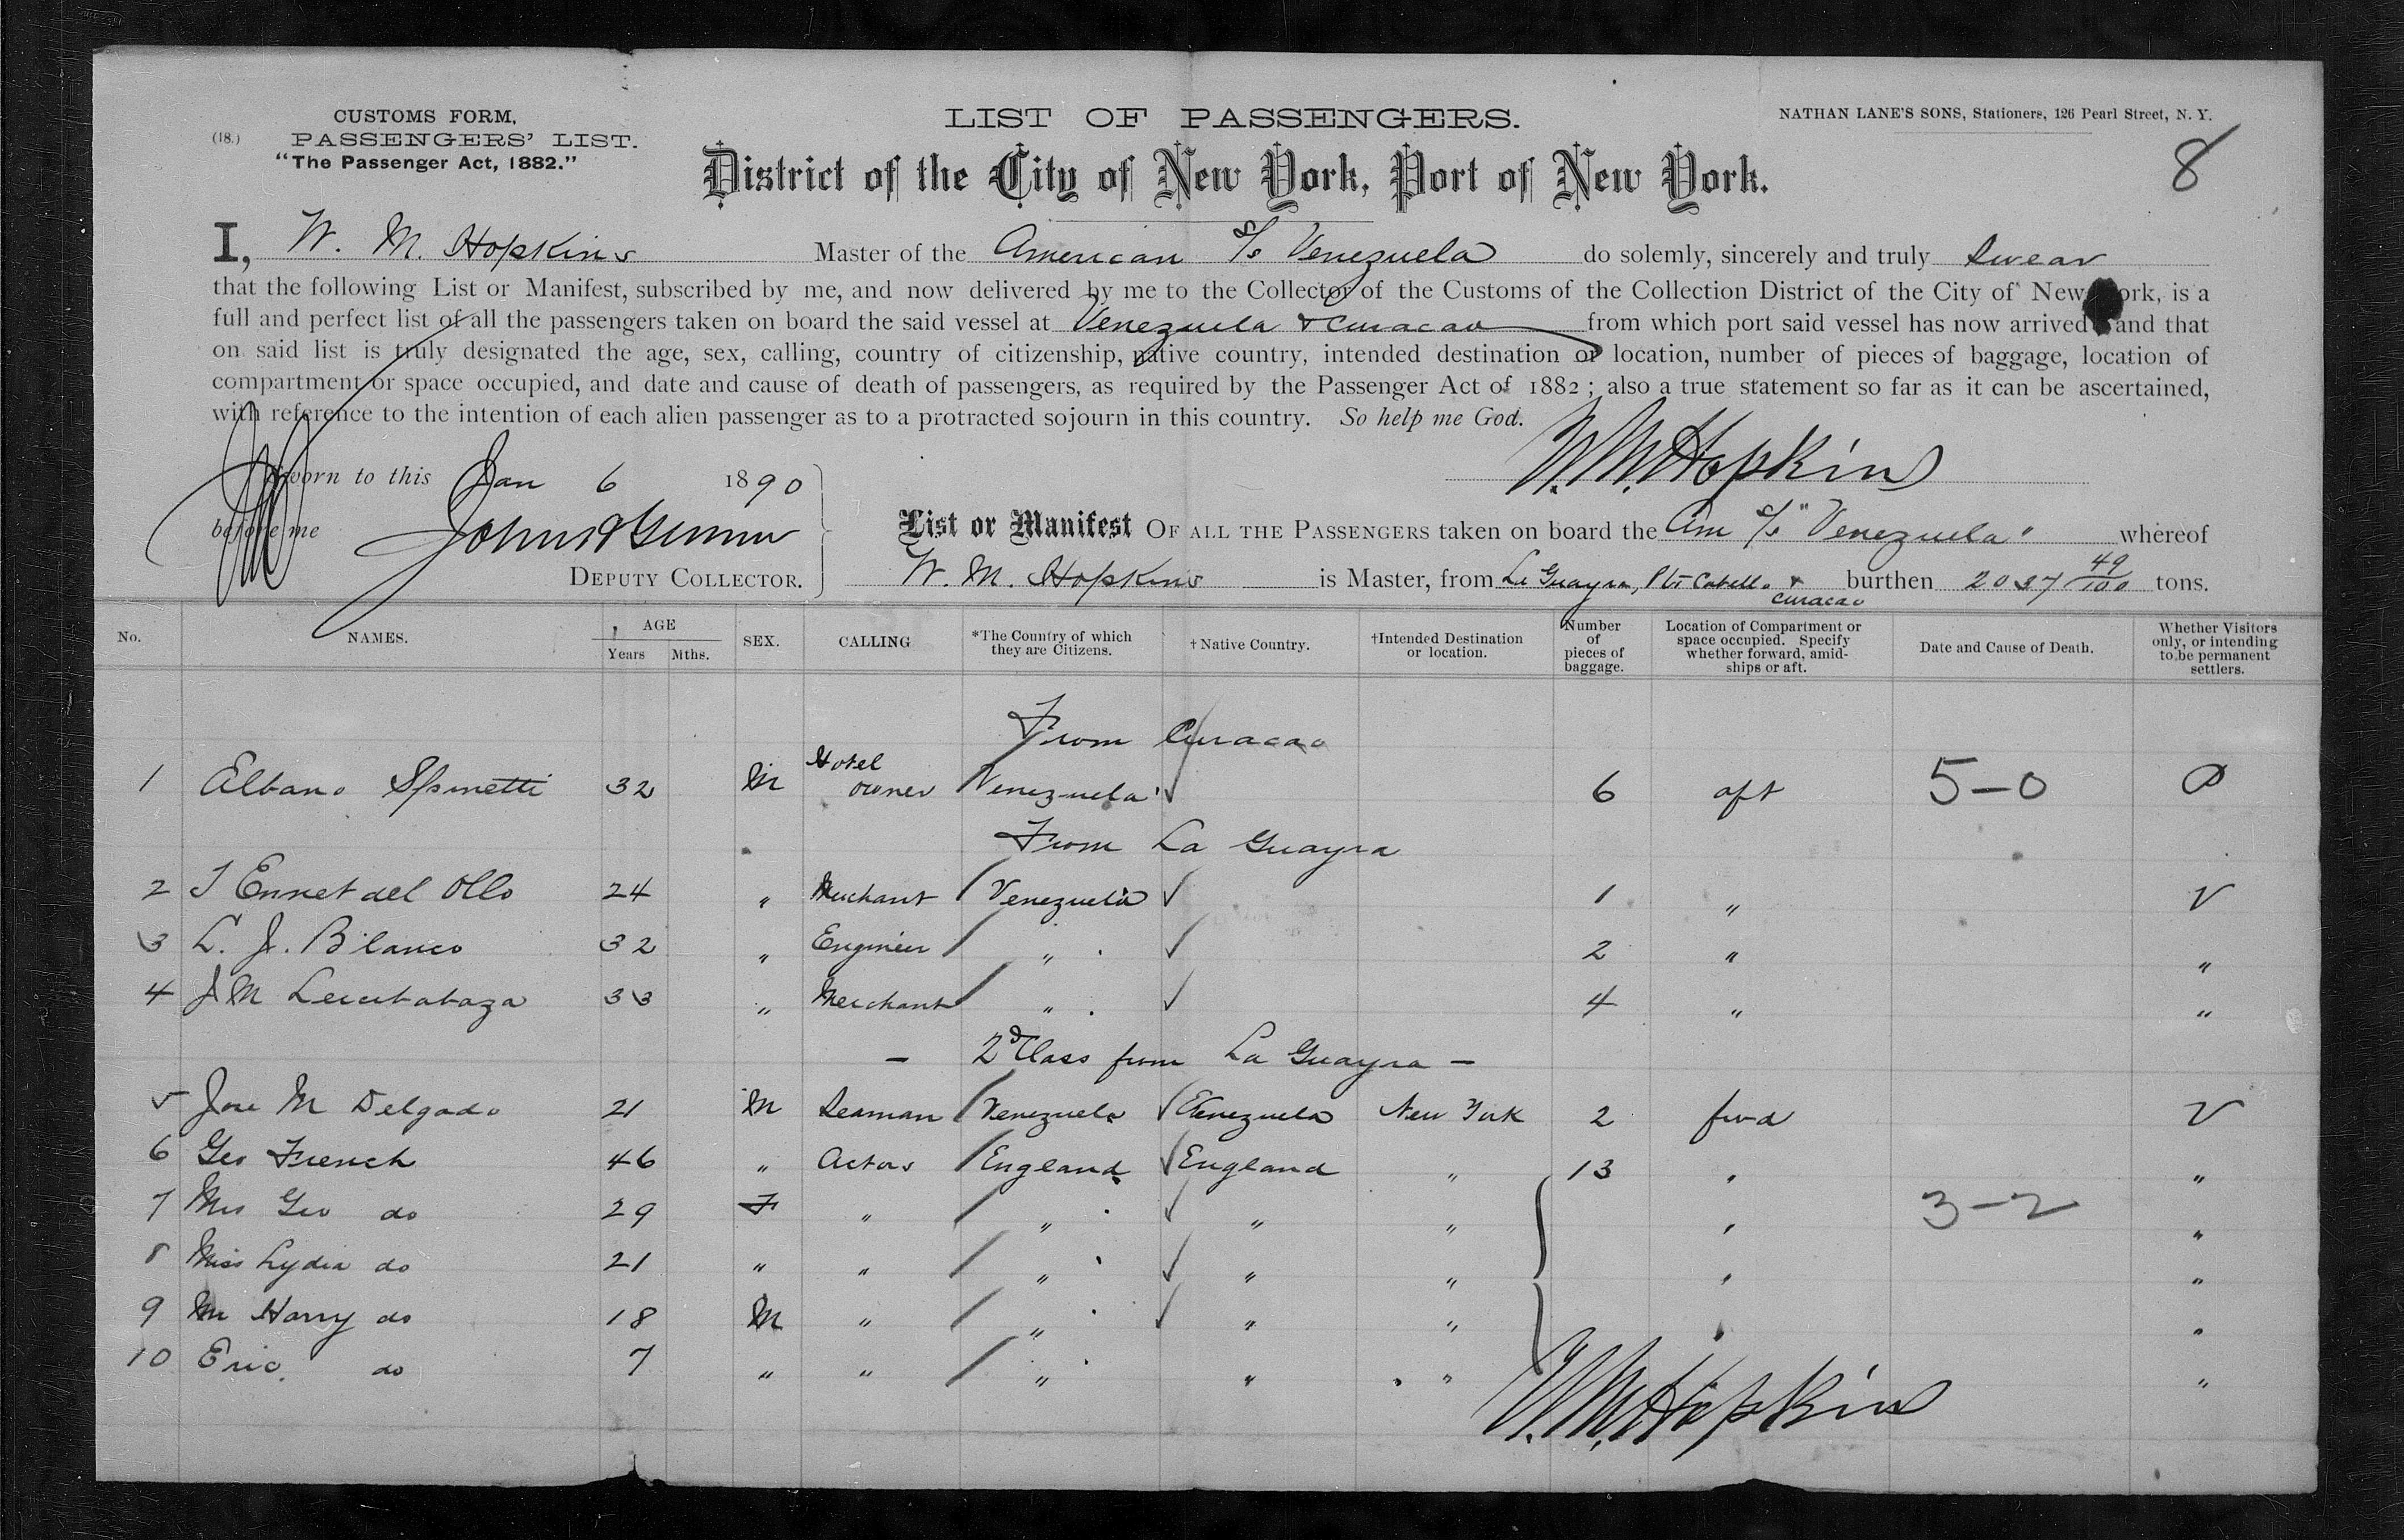 CUSTOMS FORM,
(18.) PASSENGERS' LIST.
"The Passenger Act, 1882."
LIST OF PASSENGERS.
NATHAN LANE'S SONS, Stationers, 126 Pearl Street, N. Y.
8
District of the City of New York, Port of New York.
I, W. M. Hopkins Master of the American S/s Venezuela do solemly, sincerely and truly swear
that the following List or Manifest, subscribed by me, and now delivered by me to the Collector of the Customs of the Collection District of the City of New York, is a
full and perfect list of all the passengers taken on board the said vessel at Venezuela & Curacao from which port said vessel has now arrived and that
on said list is truly designated the age, sex, calling, country of citizenship, native country, intended destination or location, number of pieces of baggage, location of
compartment or space occupied, and date and cause of death of passengers, as required by the Passenger Act of 1882; also a true statement so far as it can be ascertained,
with reference to the intention of each alien passenger as to a protracted sojourn in this country. So help me God.
W. M. Hopkins
Sworn to this Jan 6 1890
before me
DEPUTY COLLECTOR.
List or Manifest OF ALL THE PASSENGERS taken on board the Am S/s "Venezuela" whereof
W. M. Hopkins is Master, from La Guayra, Pto Cabello & Curacao burthen 2037 49/100 tons.
No. NAMES. AGE Years Mths. SEX. CALLING *The Country of which they are Citizens. †Native Country. †Intended Destination or location. Number of pieces of baggage. Location of Compartment or space occupied. Specify whether forward, amidships or aft. Date and Cause of Death. Whether Visitors only, or intending to be permanent settlers.
From Curacao
1 Albano Spinetti 32 M Hotel owner Venezuela ✓ 6 aft 5-0
From La Guayra
2 24 " Merchant Venezuela ✓ 1 " V
3 L. J. Blanco 32 " Engineer " ✓ 2 " "
4 J M 33 " Merchant " ✓ 4 " "
— 2d Class from La Guayra —
5 Jose M Delgado 21 M Seaman Venezuela ✓ Venezuela New York 2 fwd V
6 Geo French 46 " Actor England ✓ England " 13 " "
7 Mrs Geo do 29 F " " ✓ " " " 3-2 "
8 Miss Lydia do 21 " " " ✓ " " " "
9 Mr Harry do 18 M " " ✓ " " " "
10 Eric. do 7 " " " " " "
W. M. Hopkins